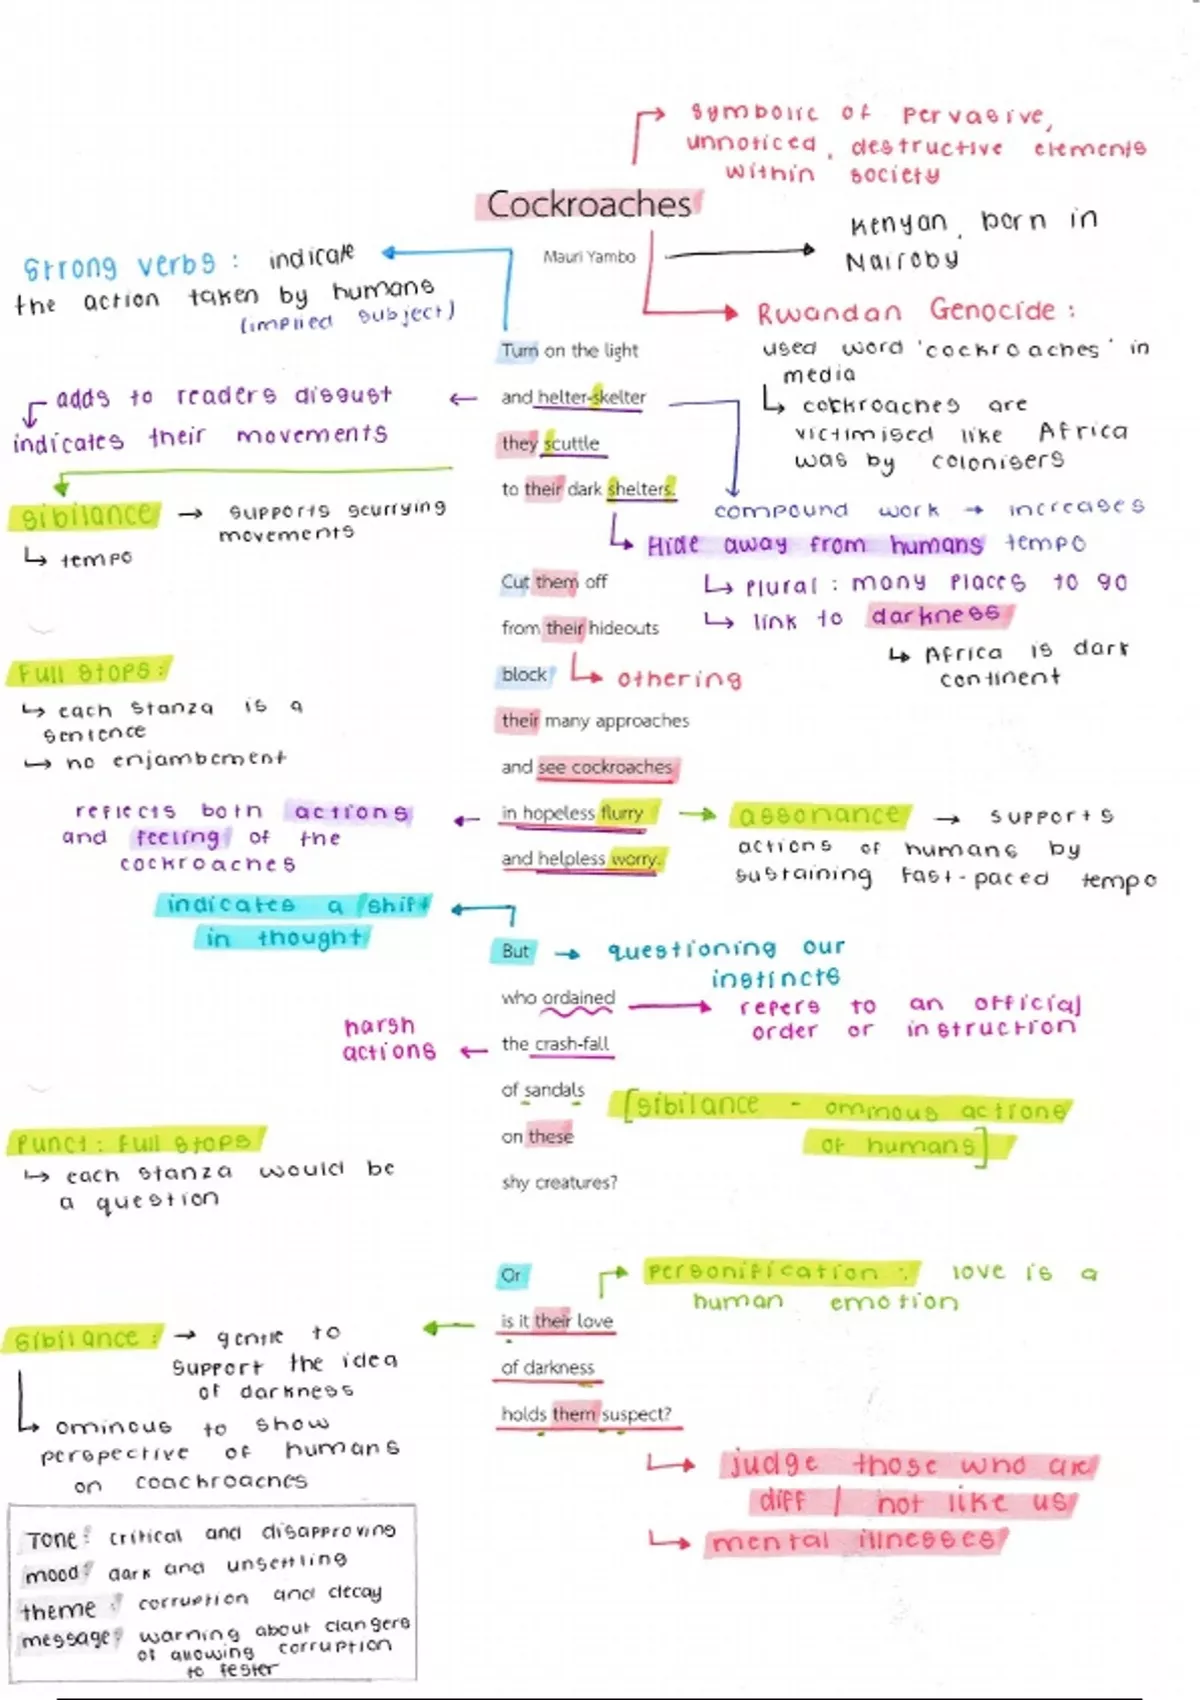 symbolic of pervasive,
unnoticed, destructive elements
within society
Cockroaches
Mauri Yambo
Kenyan, born in
Nairoby
Strong verbs: indicate
the action taken by humans
(implied subject)
Rwandan Genocide:
used word 'cockroaches' in
media
↳ cockroaches are
victimised like Africa
was by colonisers
Turn on the light
and helter-skelter
they scuttle
to their dark shelters.
adds to readers disgust
indicates their movements
sibilance → supports scurrying
movements
↳ tempo
compound work → increases
tempo
↳ Hide away from humans
↳ plural: many places to go
↳ link to darkness
↳ Africa is dark
continent
Cut them off
from their hideouts
block
their many approaches
and see cockroaches
in hopeless flurry
and helpless worry.
↳ othering
Full stops:
↳ each stanza is a
sentence
↳ no enjambement
reflects both actions
and feeling of the
cockroaches
assonance → supports
actions of humans by
sustaining fast-paced tempo
indicates a shift
in thought
But → questioning our
instincts
who ordained
the crash-fall
of sandals
on these
shy creatures?
repers to an official
order or instruction
harsh
actions
[sibilance - ominous actions
of humans]
Punct: Full stops
↳ each stanza would be
a question
Or
is it their love
of darkness
holds them suspect?
personification: love is a
human emotion
sibilance: → gentle to
support the idea
of darkness
↳ ominous to show
perspective of humans
on coachroaches
↳ judge those who are
diff / not like us
↳ mental illnesses
Tone: critical and disapproving
mood: dark and unsettling
theme: corruption and decay
message: warning about dangers
of allowing corruption
to fester